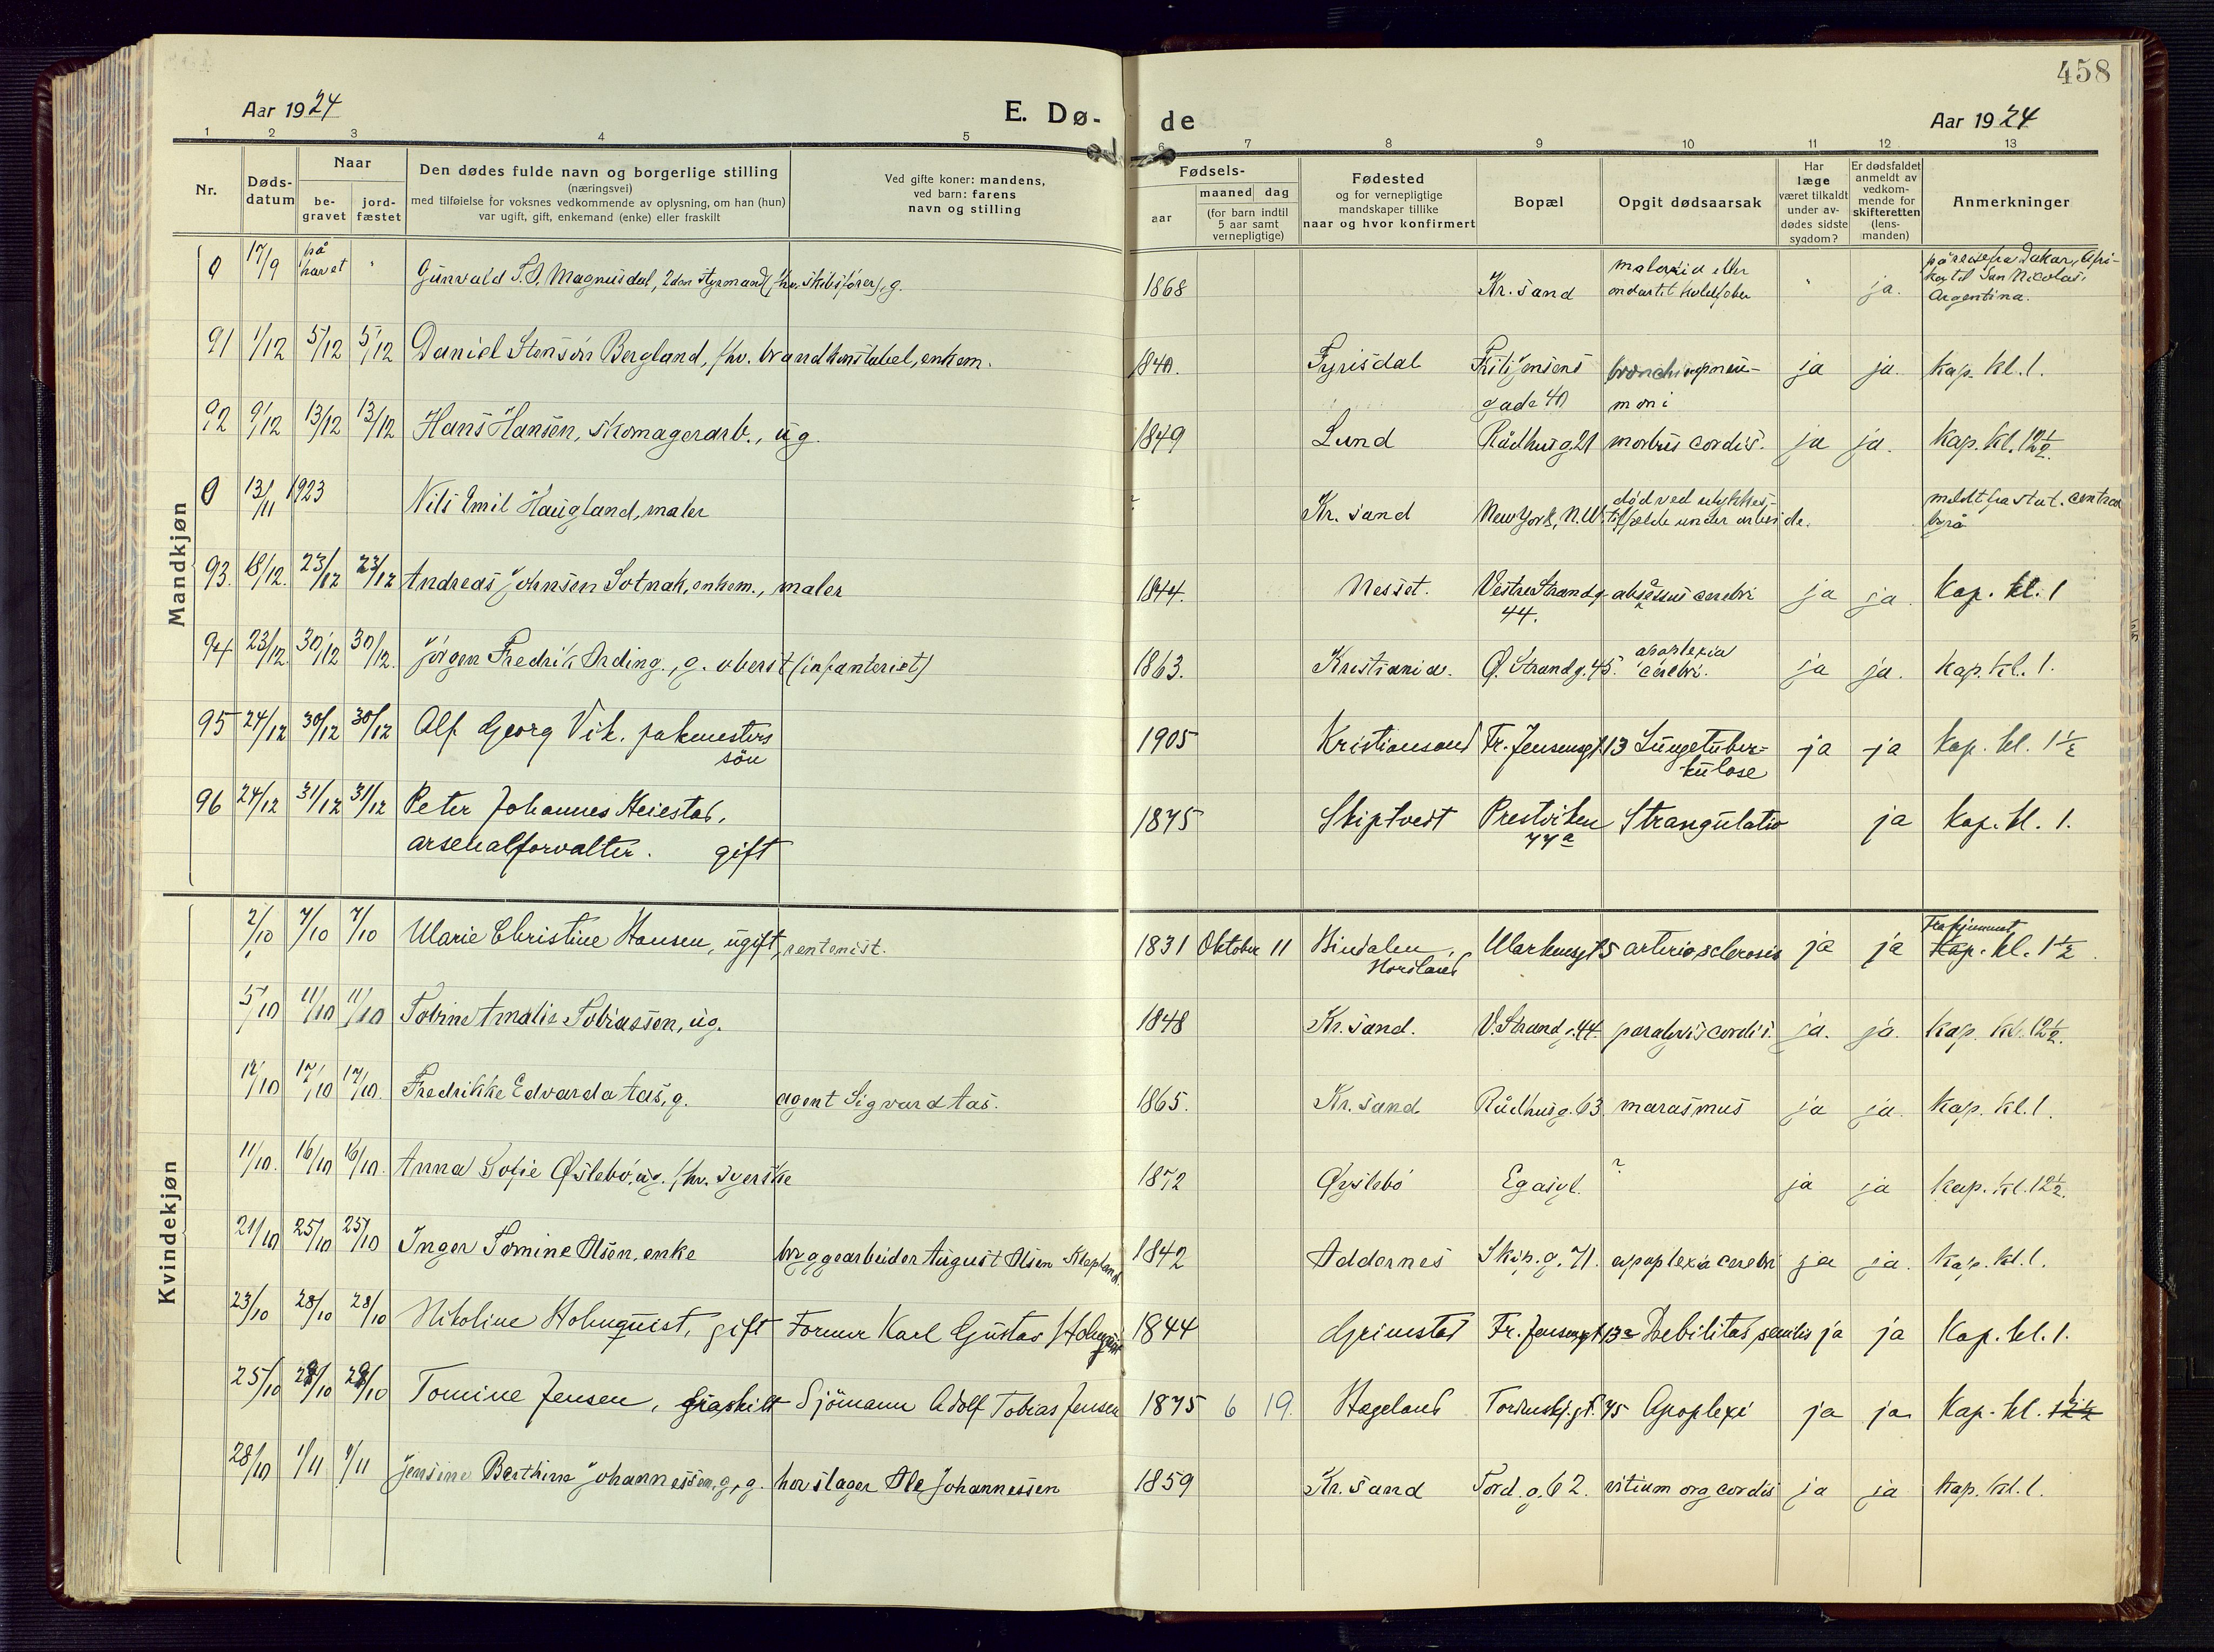 458
Aar 1924 E. Dø- de Aar 1924
1 2 3 4 5 6 7 8 9 10 11 12 13
Nr. Døds-datum Naar be-gravet jord-fæstet Den dødes fulde navn og borgerlige stilling (næringsvei) med tilføielse for voksnes vedkommende av oplysning, om han (hun) var ugift, gift, enkemand (enke) eller fraskilt Ved gifte koner: mandens, ved barn: farens navn og stilling Fødsels- aar maaned dag (for barn indtil 5 aar samt vernepligtige) Fødested og for vernepligtige mandskaper tillike naar og hvor konfirmert Bopæl Opgit dødsaarsak Har læge været tilkaldt under av-dødes sidste sygdom? Er dødsfaldet anmeldt av vedkom-mende for skifteretten (lens-manden) Anmerkninger
Mandkjøn
0 17/9 på havet " Gunvald S. Magnusdal, 2den styrmand (fhv. skibsfører), g. 1868 Kr.sand malaria eller ondartet koldfeber " ja. på reise fra Dakar, Afri-ka til San Nicolas, Argentina.
91 1/12 5/12 5/12 Daniel Stensøn Bergland, fhv. brandkonstabel, enkem. 1840. Fyrisdal gade 40 bronchiopneu-moni ja ja. Kap. kl. 1.
92 9/12 13/12 13/12 Hans Hansen, skomagerarb., ug. 1849 Lund Rådhusg. 21 morbus cordis. ja ja. Kap. kl. 12½.
0 13/11 1923 Nils Emil Haugland, maler ? Kr. sand New York, død ved ulykkes-tilfælde under arbeide. meldt fra stat. central byrå
93. 18/12. 23/12 23/12 Andreas Johnsen Sotnak, enkem., maler 1844. Nesset. Vestre Strandg. 44. abscessus cerebri ja ja. Kap. kl. 1
94 23/12. 30/12 30/12. Jörgen Fredrik Arding., g. oberst (infanteriet) 1863. Kristiania. Ø. Strandg. 45. apoplexia cerebri. ja ja. Kap. kl. 1.
95 24/12 30/12 30/12 Alf Georg Vik. pakmesters sön 1905 Kristiansand Fr. Jensensgt. 13 Lungetuber-kulose ja ja Kap. kl. 1½
96 24/12 31/12 31/12 Peter Johannes Heiestad, arsenalforvalter. gift 1875 Skiptvedt Prestviken 77a Strangulatio ja Kap. kl. 1.
Kvindekjøn
2/10 7/10 7/10 Marie Christine Hansen, ugift, rentenist. 1831 Oktober 11 Bindalen, Nordland Markensgt 5 arteriosclerosis ja ja Fra hjemmet Kap. kl. 1½.
5/10 11/10 11/10 Tobine Amalie Tobiassen, ug. 1848 Kr.sand. V. Strandg. 44. paralysis cordis. ja. ja. Kap. kl. 12½.
12/10 17/10 17/10. Fredrikke Edvarda Aas, g. agent Sigvard Aas. 1865. Kr.sand. Rådhusg. 63 marasmus ja ja. Kap. kl. 1.
11/10. 16/10 16/10. Anna Sofie Øslebö, ug. fhv. syerske 1872 Øyslebö Egasyl. ? ja ja Kap. kl. 12½.
21/10 25/10 25/10 Inger Tomine Olsen, enke bryggearbeider August Olsen Klepland. 1842 Oddernes Skip. g. 71. apoplexia cerebri ja ja. Kap. kl. 1.
23/10 28/10 28/10 Nikoline Holmquist, gift Former Karl Gustav Holmquist 1844 Grimstad Fr. Jensensgt 13a Debilitas senilis ja ja Kap. kl. 1.
25/10 29/10 29/10 Tomine Jensen, fraskilt Sjömann Adolf Tobias Jensen 1875 6 19. Hægeland Tordenskj.gt. 75 Apoplexi ja ja Kap. kl. 1
28/10 1/11 1/11 Jensine Berthine Johannessen, g, g. hovslager Ole Johannessen 1859 Kr. sand Tord. g. 62. vitium org cordis ja ja Kap. kl. 1.